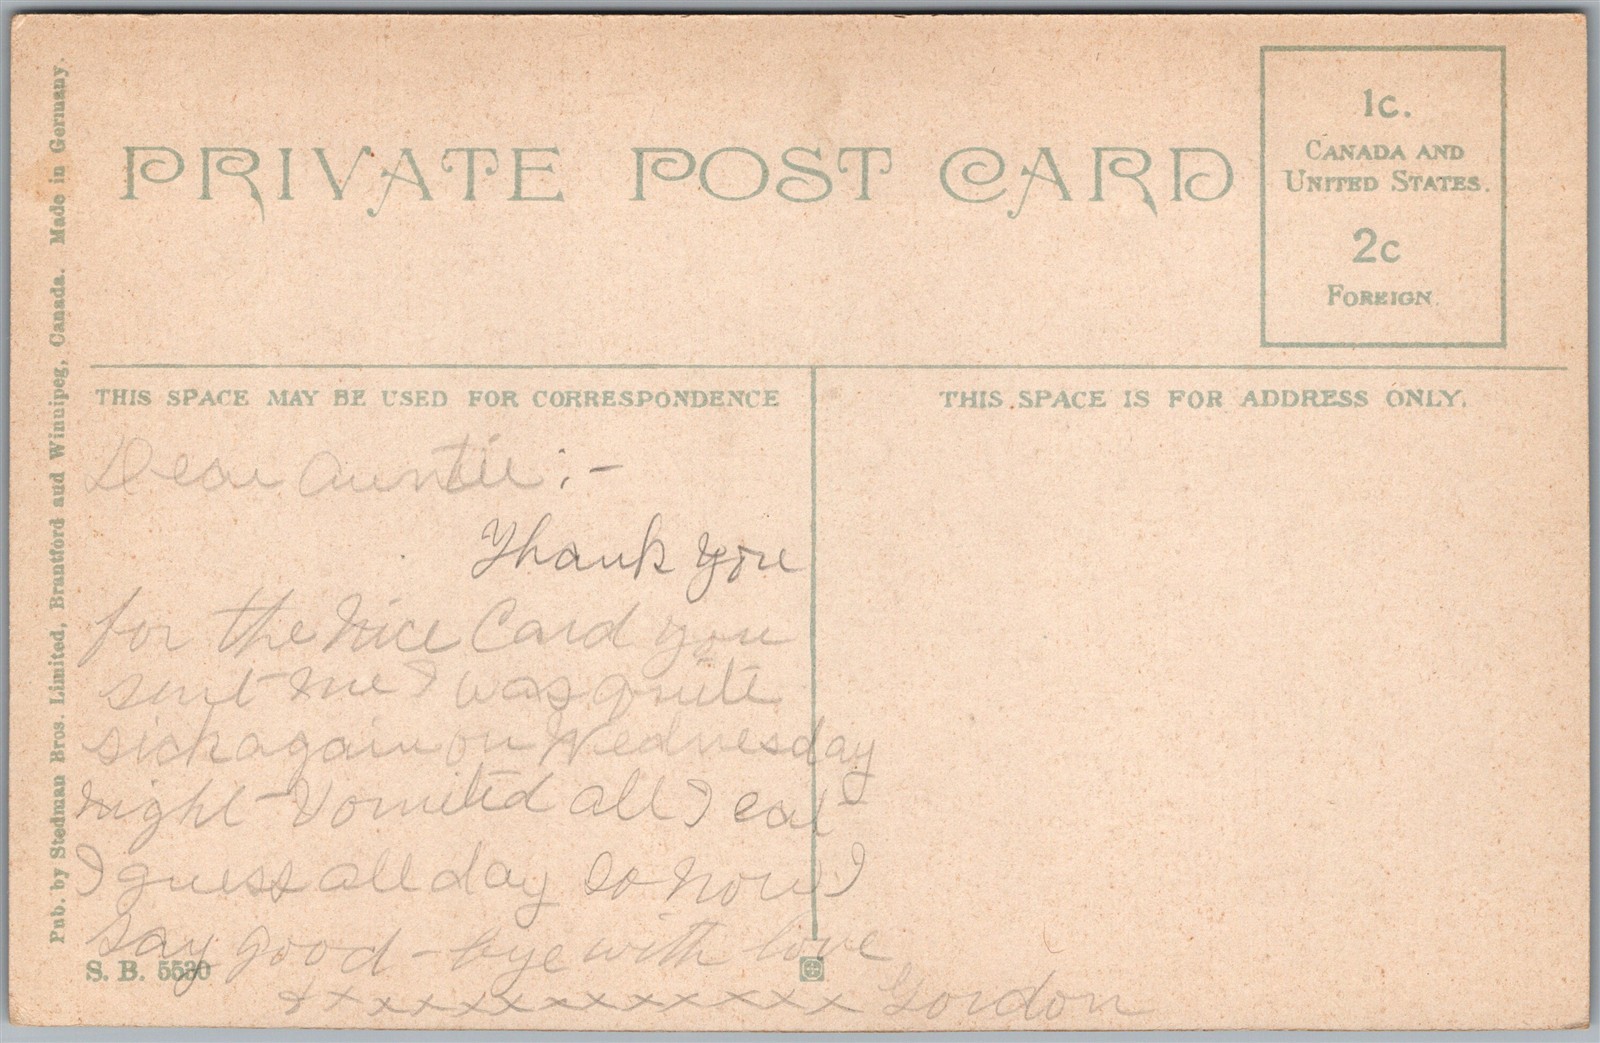 PRIVATE POST CARD
1c.
CANADA AND
UNITED STATES.
2c
FOREIGN.
THIS SPACE MAY BE USED FOR CORRESPONDENCE
THIS SPACE IS FOR ADDRESS ONLY.
Dear Auntie :-
Thank you
for the Nice Card you
sent me I was quite
sick again on Wednesday
night Vomited all I eat
I guess all day so now I
say good-bye with love
xxxxxxxxxxxxx Gordon
S. B. 5530
Pub. by Stedman Bros. Limited, Brantford and Winnipeg, Canada. Made in Germany.